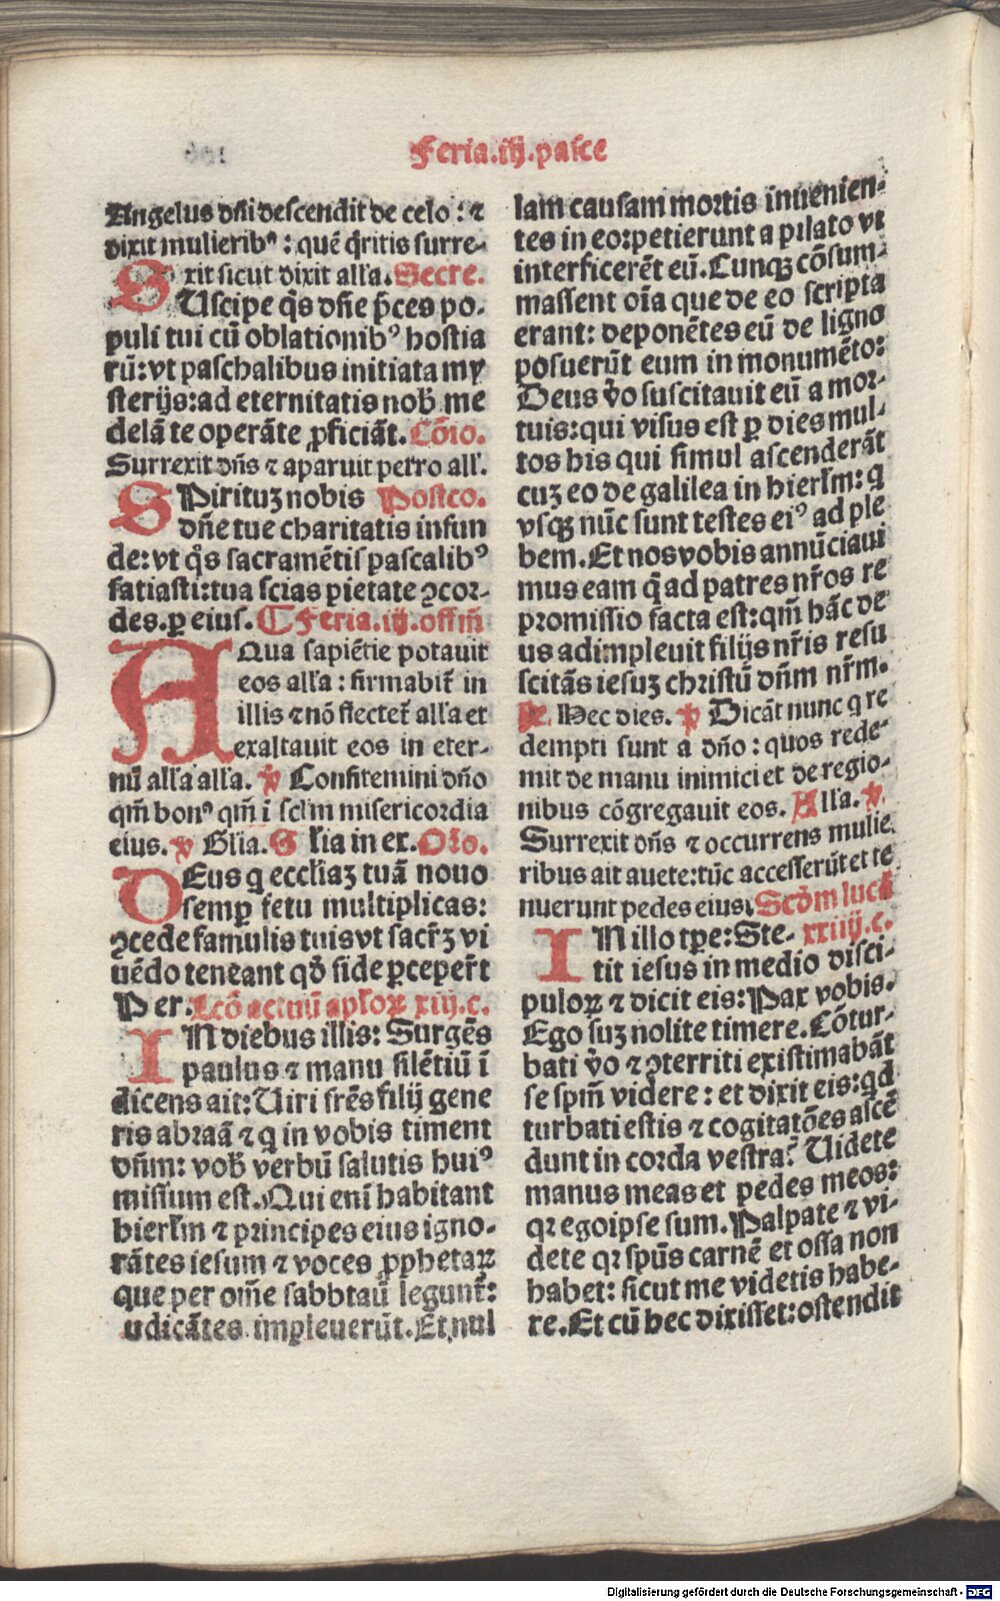 Feria.iij.pasce
Angelus dñi descendit de celo: ⁊
dixit mulieribꝰ: quē q̄ritis surre-
xit sicut dixit alľa. Secre.
SUscipe q̄s dñe p̄ces po-
puli tui cū oblationibꝰ hostia
rū: vt paschalibus initiata my
sterijs: ad eternitatis nob̄ me
delā te operāte ꝓficiāt. Cōio.
Surrexit dñs ⁊ aparuit petro all'.
SPirituʒ nobis Postco.
dñe tue charitatis infun
de: vt q̄s sacramētis pascalibꝰ
satiasti: tua facias pietate ꝯcor-
des. ꝑ eius. ¶ Feria.iij.offm̄
AQua sapiētie potauit
eos alľa: firmabit̄ in
illis ⁊ nō flectet̄ alľa et
exaltauit eos in eter-
nū alľa alľa. ℣ Confitemini dño
qm̄ bonꝰ qm̄ ī sclm misericordia
eius. ℣ Glia. Glia in ex. Oro.
DEus q eccliaʒ tuā nouo
semꝑ fetu multiplicas:
ꝯcede famulis tuis vt sacr̄ʒ vi
uēdo teneant qd̄ fide ꝑceper̄t
Per. Lcō actuū aploꝝ xiij.c.
IN diebus illis: Surgēs
paulus ⁊ manu silētiū ī
dicens ait: Uiri fr̄es filij gene
ris abraā ⁊ q in vobis timent
dñm: vob̄ verbū salutis huiꝰ
missum est. Qui eni habitant
hierlm̄ ⁊ principes eius igno-
rātes iesum ⁊ voces ꝓphetaꝝ
que per om̄e sabbtaū legunt̄:
udicātes impleuerūt. Et nul
lam causam mortis inuenien-
tes in eo: petierunt a pilato vt
interficerēt eū. Cunqꝫ cōsum-
massent oīa que de eo scripta
erant: deponētes eū de ligno
posuerūt eum in monumēto:
Deus v̄o suscitauit eū a mor-
tuis: qui visus est ꝑ dies mul-
tos his qui simul ascenderāt
cuʒ eo de galilea in hierlm̄: q
vsqꝫ nūc sunt testes eiꝰ ad ple
bem. Et nos vobis annūciaui
mus eam q̄ ad patres nr̄os re
promissio facta est: qm̄ hāc de
us adimpleuit filijs nr̄is resu
scitās iesuʒ christū dñm nr̄m.
℟. Hec dies. ℣ Dicāt nunc q re
dempti sunt a dño: quos rede-
mit de manu inimici et de regio-
nibus cōgregauit eos. Alľa. ℣.
Surrexit dñs ⁊ occurrens mulie
ribus ait auete: tūc accesserūt et te
nuerunt pedes eius. Scd̄m lucā
IN illo tꝑe: Ste- xxiiij.c.
tit iesus in medio disci-
puloꝝ ⁊ dicit eis: Pax vobis.
Ego suʒ nolite timere. Cōtur-
bati v̄o ⁊ ꝯterriti existimabāt
se spm̄ videre: et dixit eis: qd
turbati estis ⁊ cogitatōes ascē
dunt in corda vestra? Uidete
manus meas et pedes meos:
qꝛ ego ipse sum. Palpate ⁊ vi-
dete qꝛ spūs carnē et ossa non
habet: sicut me videtis habe-
re. Et cū hec dixisset: ostendit
Digitalisierung gefördert durch die Deutsche Forschungsgemeinschaft - DFG